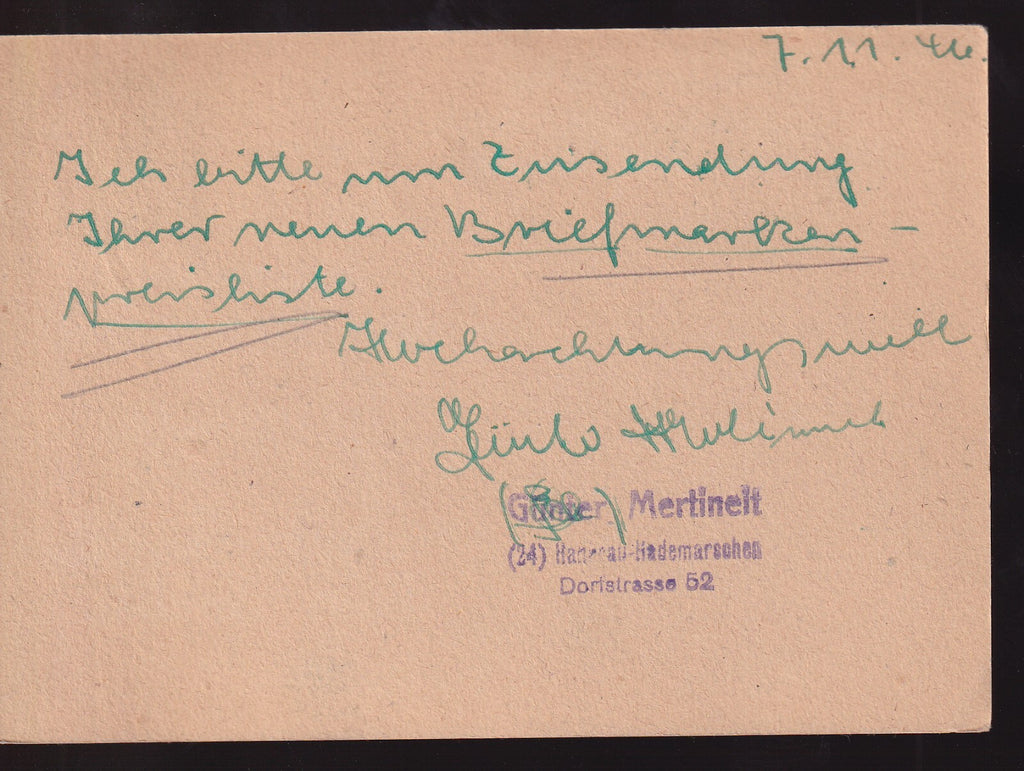 7.11.46.
Ich bitte um Zusendung
Ihrer neuen Briefmarken-
preisliste.
Hochachtungsvoll
Günter Mertineit
(24) Hanerau-Hademarschen
Dorfstrasse 52